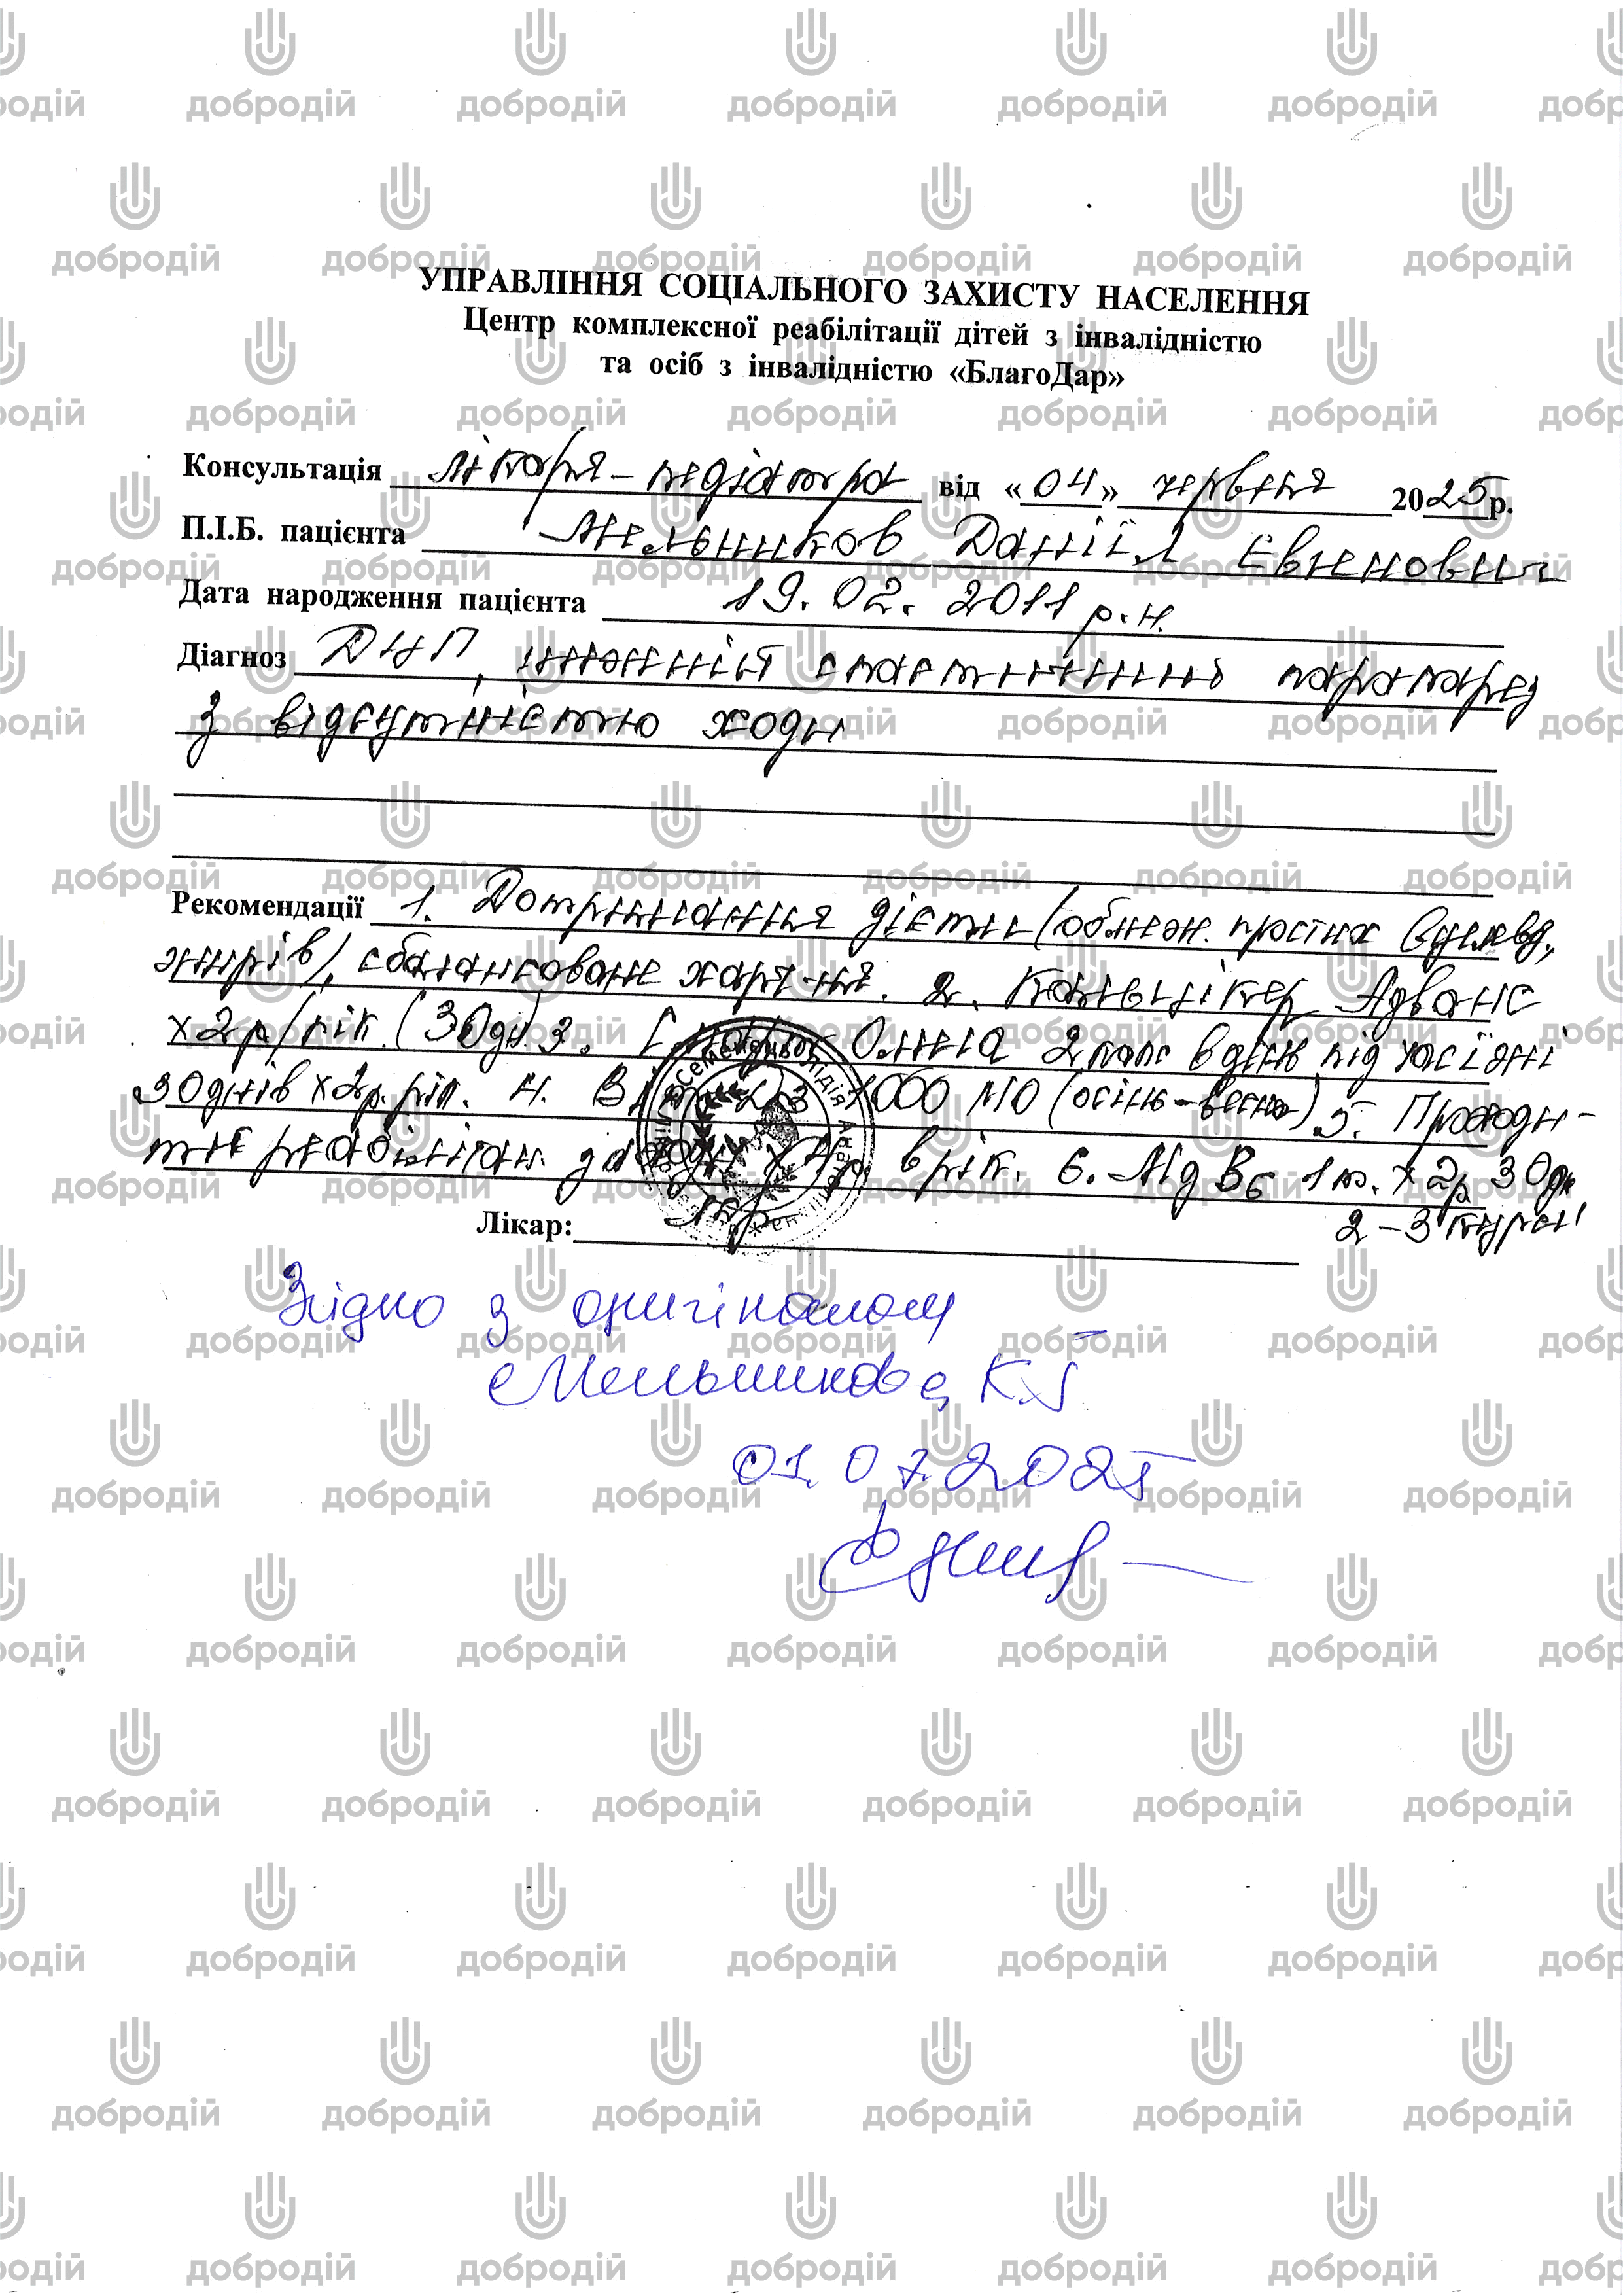 УПРАВЛІННЯ СОЦІАЛЬНОГО ЗАХИСТУ НАСЕЛЕННЯ
Центр комплексної реабілітації дітей з інвалідністю
та осіб з інвалідністю «БлагоДар»
Консультація лікаря-педіатра від «04» червня 2025р.
П.І.Б. пацієнта Мельников Даніїл Євгенович
Дата народження пацієнта 19.02.2011 р.н.
Діагноз ДЦП, нижній спастичний парапарез
з відсутністю ходи
Рекомендації 1. Дотримання дієти (обмеж. простих вуглевод.,
жирів), збалансоване харч-ня. 2. Кальцікер Адванс
х2р/рік. (30дн) 3. Смарт Омега 2 капс в день під час їжі
30днів х2р. рік. 4. Віт Д3 1000 МО (осінь-весна) 5. Проходи-
ти реабілітац. 4р. в рік. 6. Мg В6 1т. х 2р 30дн
2-3 курси
Лікар:
Згідно з оригіналом
Мельникова К.Г
01.07.2025
добродій